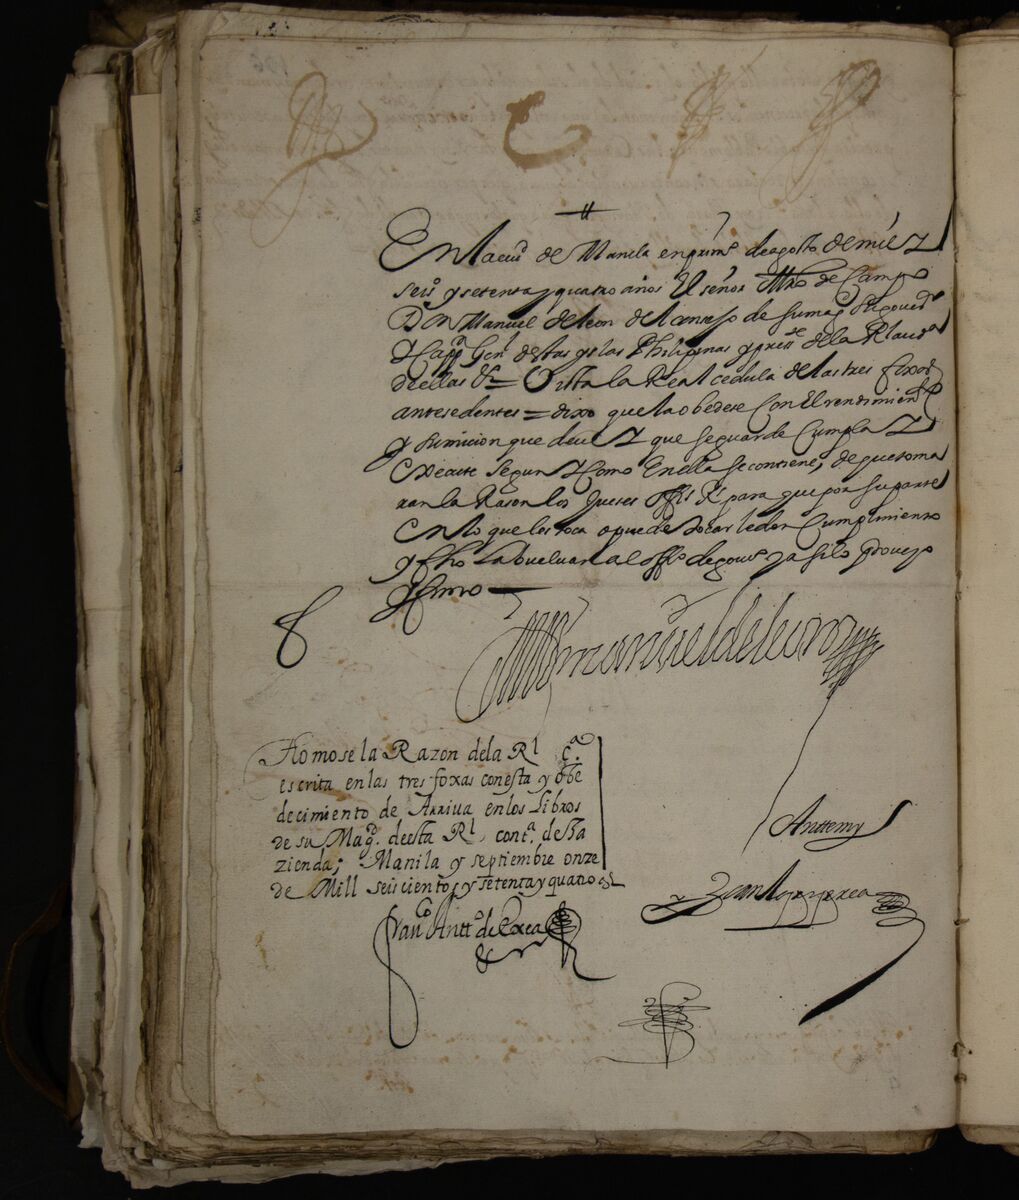 En la ciud de Manila en prim.o de agosto de mil y
seis.s y setenta y quatro años El señor Mro de Campo
Don Manuel de leon del consejo de su mag.d su Gover.or
y Capp.n Gen.l destas yslas Philipinas y press.te de la Rl aud.a
de ellas &.a = Vista la Real cedula de las tres foxas
antesedentes = dixo que la obedese con El rendimien.to
y sumicion que deve y que se guarde cumpla y
Execute segun y como En ella se contiene, de que toma
ran la Rason los Jueses offi.s R.s para que por su parte
En lo que les toca o puede tocar le den cumplimiento
y fho la buelvan al offi.o de gov.no y asi lo proveyo
y firmo
Manuel de leon
Antemy
Tomose la Razon de la Rl C.a
escrita en las tres foxas con esta y obe
decimiento de Arriva en los Libros
de su Mag.d de esta Rl cont.a de Ha
zienda; Manila y septiembre onze
de Mill seiscientos y setenta y quatro
Fran.co Antt.o de Exea